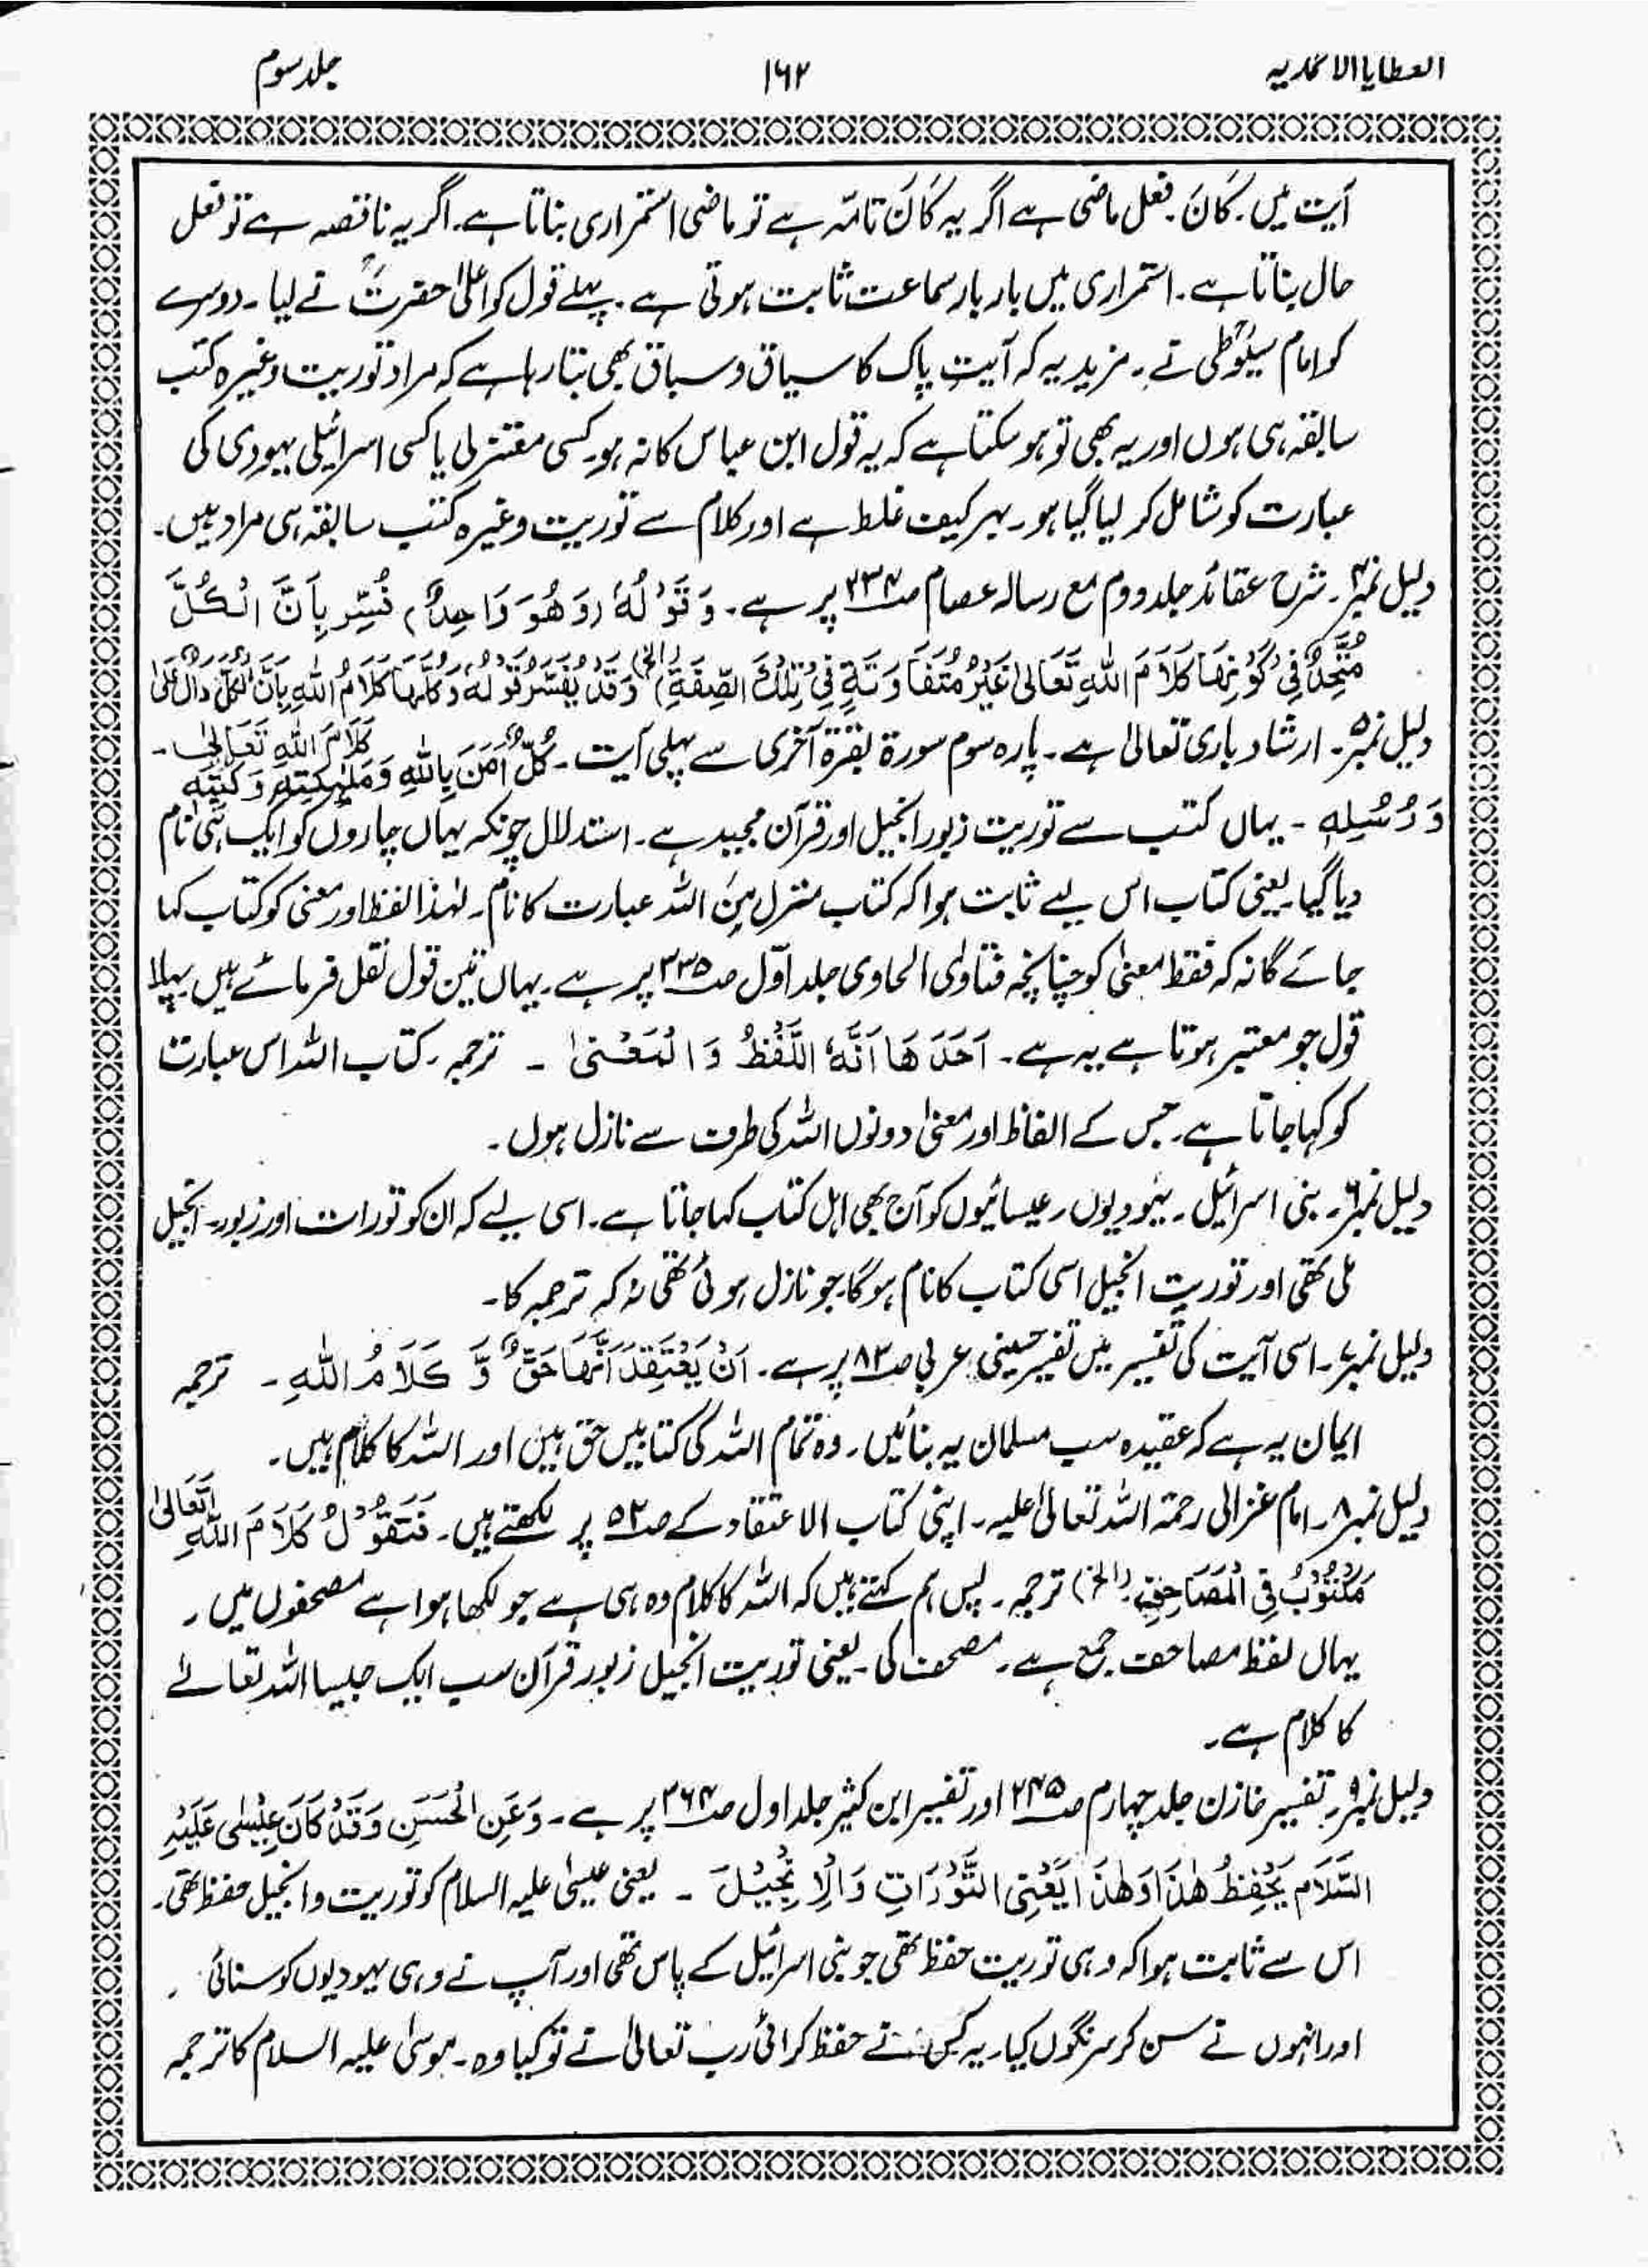 العطایا الاحمدیہ ۱۶۲ جلد سوم
آیت میں۔ کَانَ۔ فعل ماضی ہے اگر یہ کَانَ تامّہ ہے تو ماضی استمراری بناتا ہے۔ اگر یہ ناقصہ ہے تو فعل
حال بناتا ہے۔ استمراری میں بار بار سماعت ثابت ہوتی ہے۔ پہلے قول کو اعلیٰ حضرتؒ نے لیا۔ دوسرے
کو امام سیوطیؒ نے۔ مزید یہ کہ آیتِ پاک کا سیاق و سباق بھی بتا رہا ہے کہ مراد توریت وغیرہ کتب
سابقہ ہی ہوں اور یہ بھی تو ہو سکتا ہے کہ یہ قول ابن عباس کا نہ ہو۔ کسی معتزلی یا کسی اسرائیلی یہودی کی
عبارت کو شامل کر لیا گیا ہو۔ بہر کیف غلط ہے اور کلام سے توریت وغیرہ کتب سابقہ ہی مراد ہیں۔
دلیل نمبر۴۔ شرح عقائد جلد دوم مع رسالہ عصام صـ۲۳۴ پر ہے۔ وَ قَوْلُهٗ (وَ هُوَ وَاحِدٌ) فُسِّرَ بِاَنَّ الْكُلَّ
مُتَّحِدٌ فِيْ كَوْنِهَا كَلَامَ اللهِ تَعَالىٰ غَيْرُ مُتَفَاوِتَةٍ فِيْ تِلْكَ الصِّفَةِ (الخ) وَقَدْ يُفَسَّرُ قَوْلُهٗ وَكُلُّهَا كَلَامُ اللهِ بِاَنَّ الْكُلَّ دَالٌّ عَلىٰ
كَلَامِ اللهِ تَعَالىٰ۔
دلیل نمبر۵۔ ارشاد باری تعالیٰ ہے۔ پارہ سوم سورۃ بقرۃ آخری سے پہلی آیت۔ كُلٌّ اٰمَنَ بِاللهِ وَمَلٰئِكَتِهٖ وَكُتُبِهٖ
وَ رُسُلِهٖ۔ یہاں کتب سے توریت زبور انجیل اور قرآن مجید ہے۔ استدلال چونکہ یہاں چاروں کو ایک ہی نام
دیا گیا یعنی کتاب اس لیے ثابت ہوا کہ کتاب منزل مِنَ اللہ عبارت کا نام۔ لہٰذا لفظ اور معنی کو کتاب کہا
جائے گا نہ کہ فقط معنیٰ کو چنانچہ فتاوٰی الحاوی جلد اوّل صـ۳۳۵ پر ہے۔ یہاں تین قول نقل فرمائے ہیں پہلا
قول جو معتبر ہوتا ہے یہ ہے۔ اَحَدُهَا اَنَّهٗ اللَّفْظُ وَ الْمَعْنىٰ ۔ ترجمہ۔ کتاب اللہ اس عبارت
کو کہا جاتا ہے۔ جس کے الفاظ اور معنیٰ دونوں اللہ کی طرف سے نازل ہوں۔
دلیل نمبر۶۔ بنی اسرائیل۔ یہودیوں۔ عیسائیوں کو آج بھی اہل کتاب کہا جاتا ہے۔ اسی لیے کہ ان کو تورات اور زبور۔ انجیل
ملی تھی اور توریت انجیل اسی کتاب کا نام ہوگا جو نازل ہوئی تھی نہ کہ ترجمہ کا۔
دلیل نمبر۷۔ اسی آیت کی تفسیر میں تفسیر حسینی عربی صـ۸۳ پر ہے۔ اَنْ يَعْتَقِدَ اَنَّهَا حَقٌّ وَّ كَلَامُ اللهِ ۔ ترجمہ
ایمان یہ ہے کہ عقیدہ سب مسلمان یہ بنائیں۔ وہ تمام اللہ کی کتابیں حق ہیں اور اللہ کا کلام ہیں۔
دلیل نمبر۸۔ امام غزالی رحمۃ اللہ تعالیٰ علیہ۔ اپنی کتاب الاعتقاد کے صـ۵۲ پر لکھتے ہیں۔ فَنَقُوْلُ كَلَامَ اللهِ تَعَالىٰ
مَكْتُوْبٌ فِي الْمَصَاحِفِ (الخ) ترجمہ۔ پس ہم کہتے ہیں کہ اللہ کا کلام وہ ہی ہے جو لکھا ہوا ہے مصحفوں میں۔
یہاں لفظ مصاحف جمع ہے۔ مصحف کی یعنی توریت انجیل زبور قرآن سب ایک جیسا اللہ تعالےٰ
کا کلام ہے۔
دلیل نمبر۹۔ تفسیر خازن جلد چہارم صـ۲۴۵ اور تفسیر ابن کثیر جلد اول صـ۳۶۴ پر ہے۔ وَعَنِ الْحَسَنِ وَقَدْ كَانَ عِيْسٰى عَلَيْهِ
السَّلَام يَحْفِظُ هٰذَا وَهٰذَا يَعْنِى التَّوْرَاتِ وَالْاِنْجِيْلَ ۔ یعنی عیسیٰ علیہ السلام کو توریت و انجیل حفظ تھی۔
اس سے ثابت ہوا کہ وہی توریت حفظ تھی جو بنی اسرائیل کے پاس تھی اور آپ نے وہی یہودیوں کو سنائی۔
اور انہوں نے سن کر سرنگوں کیا۔ یہ کس نے حفظ کرائی رب تعالیٰ نے تو کیا وہ۔ موسیٰ علیہ السلام کا ترجمہ